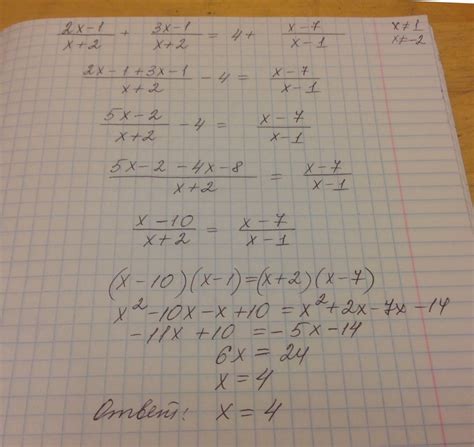 (2x-1)/(x+2) + (3x-1)/(x+2) = 4 + (x-7)/(x-1) x≠1
x≠-2
(2x-1+3x-1)/(x+2) - 4 = (x-7)/(x-1)
(5x-2)/(x+2) - 4 = (x-7)/(x-1)
(5x-2-4x-8)/(x+2) = (x-7)/(x-1)
(x-10)/(x+2) = (x-7)/(x-1)
(x-10)(x-1)=(x+2)(x-7)
x²-10x-x+10=x²+2x-7x-14
-11x+10=-5x-14
6x=24
x=4
Ответ: x=4